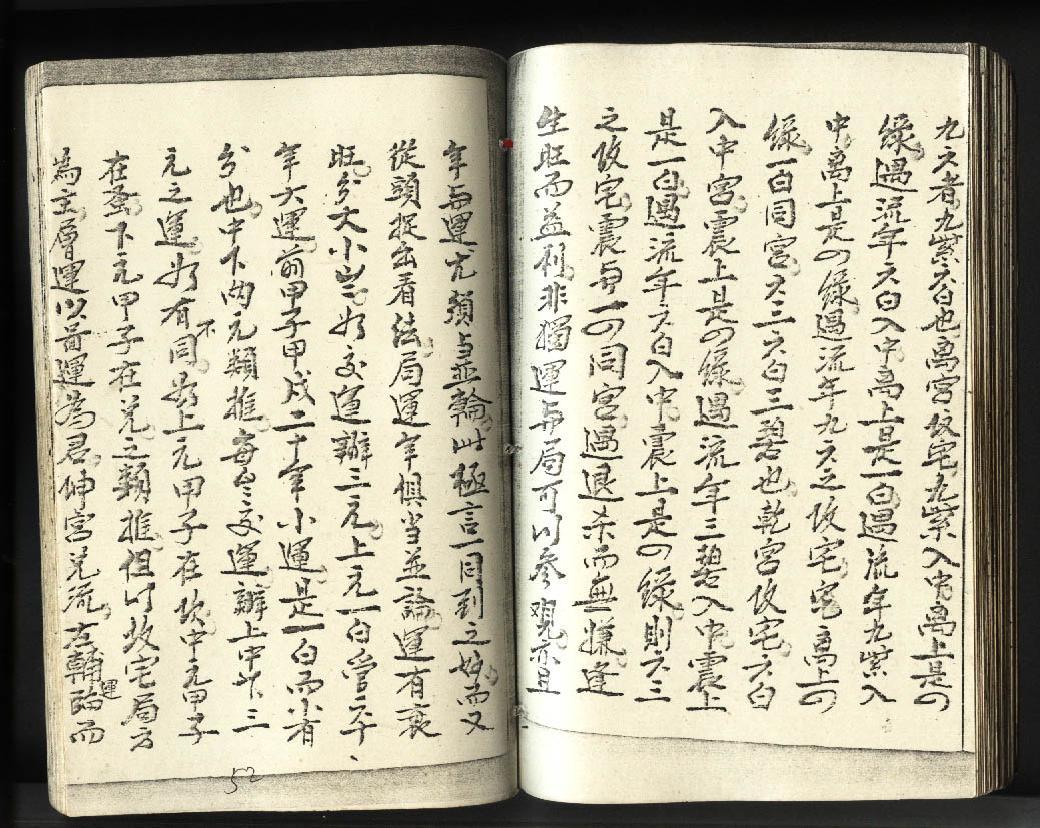 九六者九紫六白也离宮坎宅九紫入中离上是四
緑遇流年六白入中离上是一白遇流年九紫入
中离上是四緑遇流年九六之坎宅宅离上四
緑一白同宮六三六白三碧也乾宮坎宅六白
入中宮震上是四緑遇流年三碧入中震上
是一白遇流年六白入中震上是四緑則六三
之坎宅震与一四同宮遇退杀而無嫌逢
生旺而益利非獨運与局可以參觀亦且
年与運尤須並輪此極言一同到之妙而又
從頭捉出看法局運年俱当並論運有衰
旺分大小此如交運辦三元上元一白管六十
年大運前甲子甲戌二十年小運是一白而小有
分也中下两元類推每年交運辦上中下三
元之運如有不同如上元甲子在坎中元甲子
在巽下元甲子在兑之類推但以坎宅局方
為主層運以首運為君伸宮兑流左輔運臨而
52